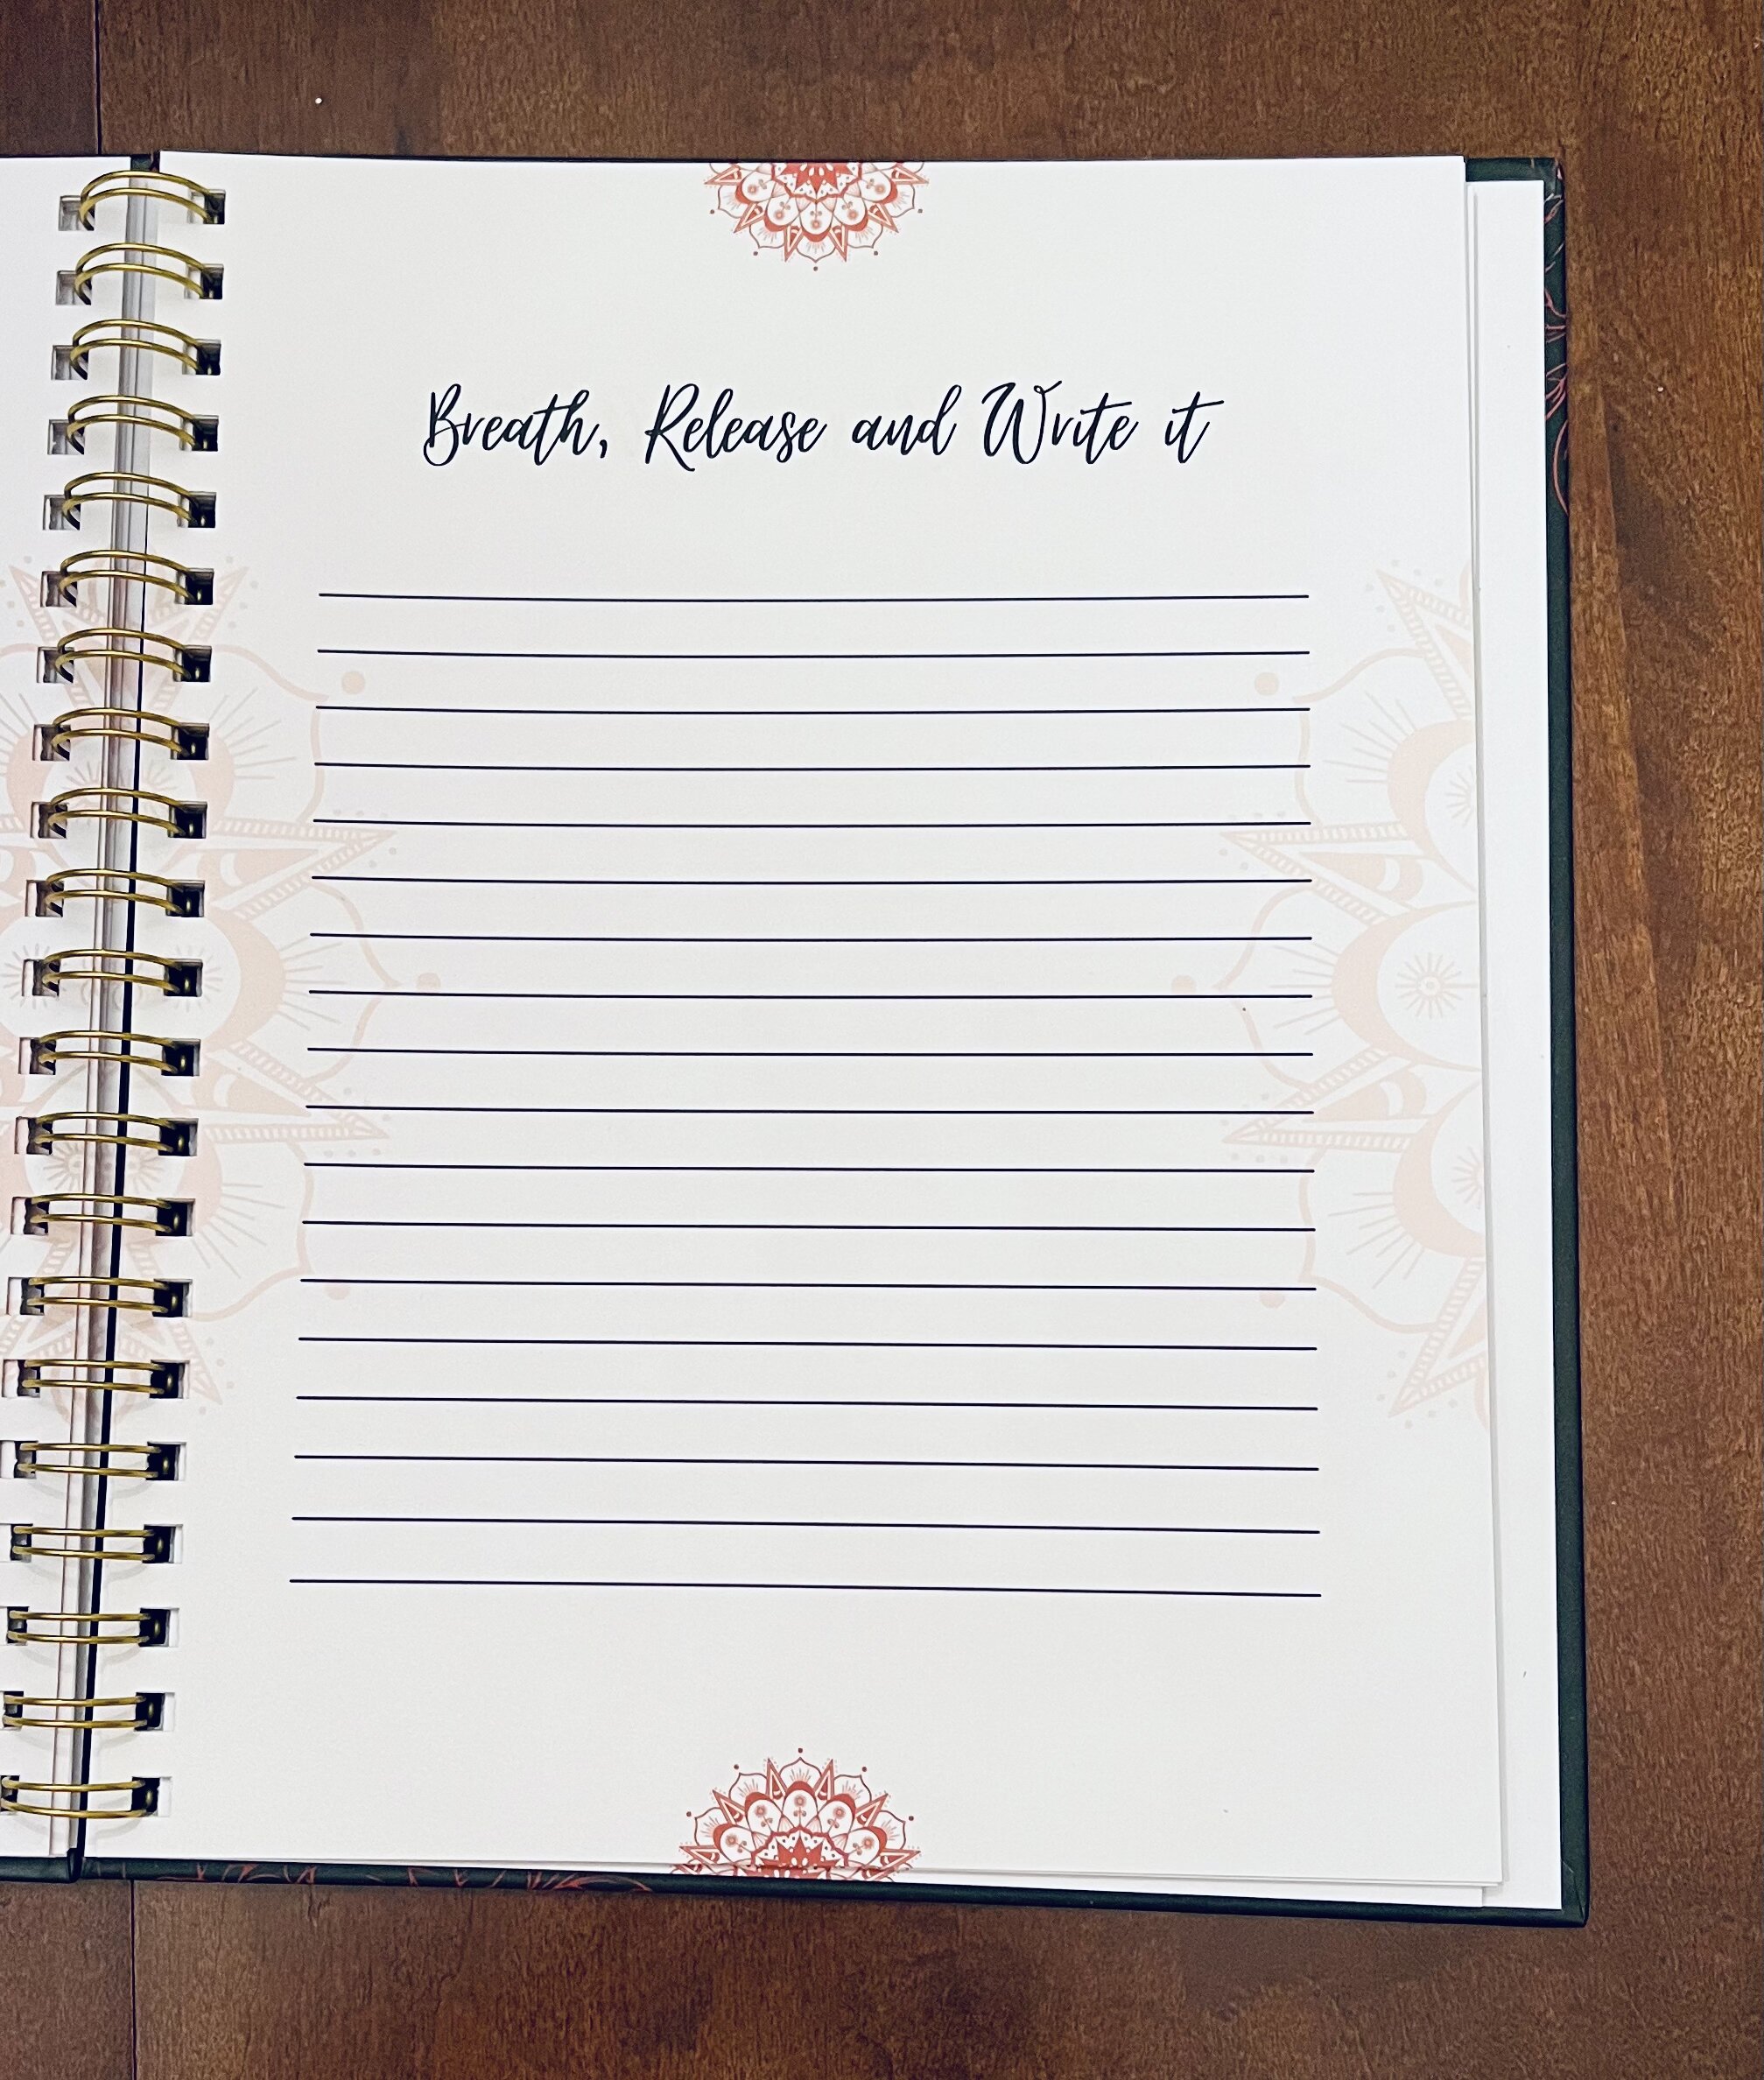 Breath, Release and Write it